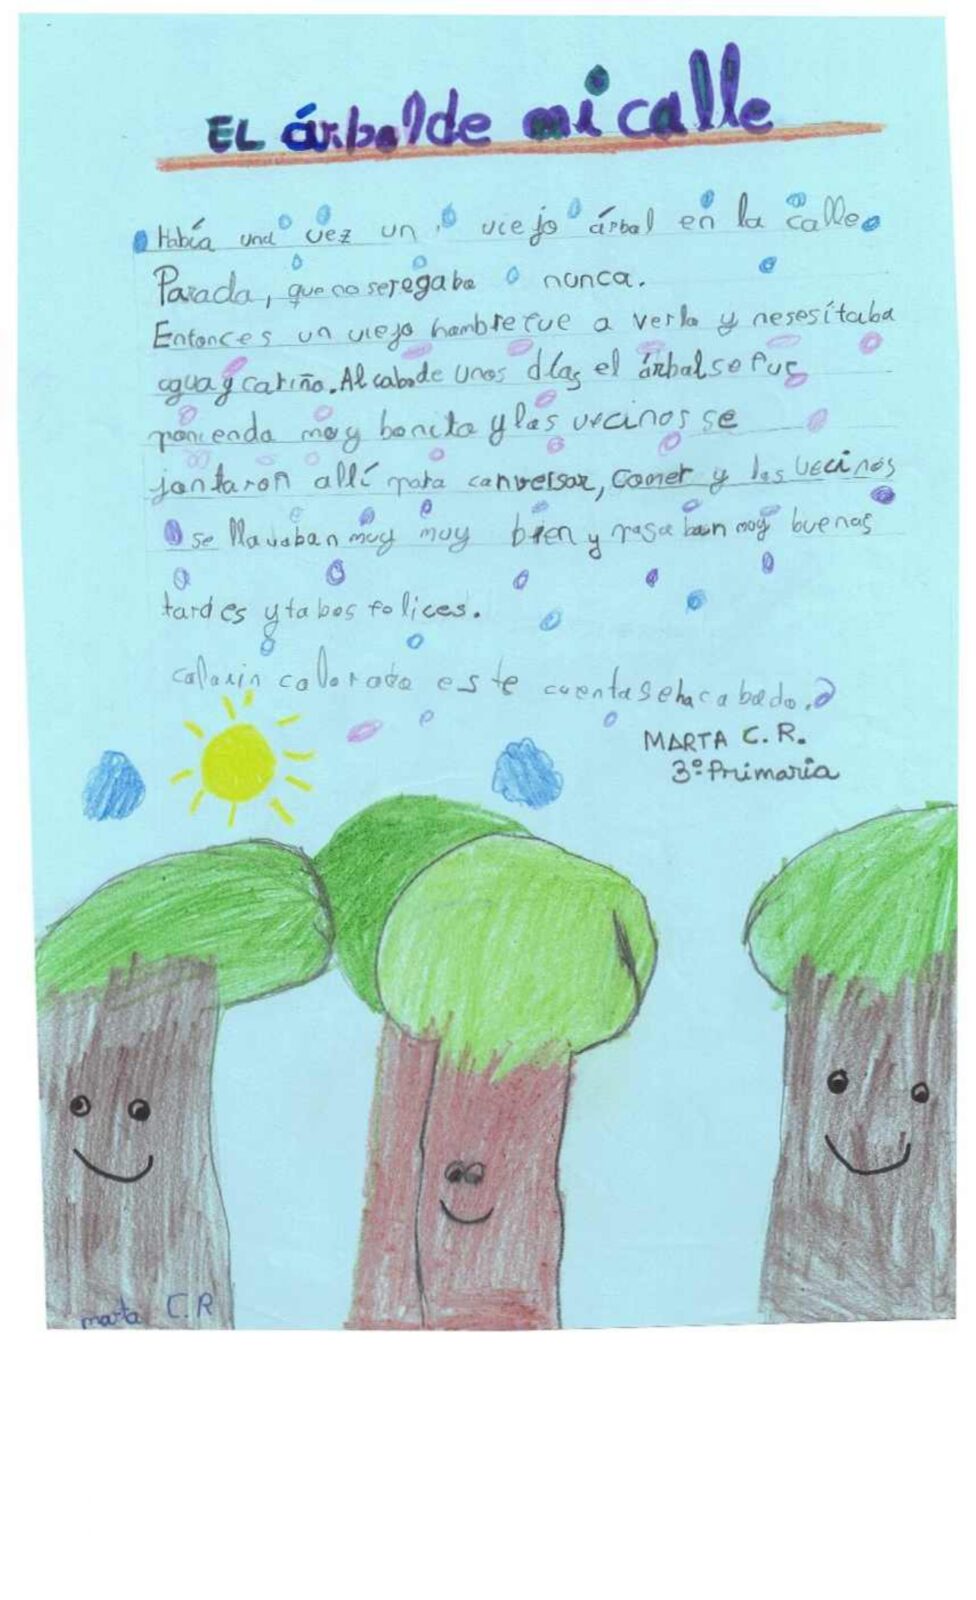 EL árbol de mi calle
Había una vez un viejo árbol en la calle
Parada, que no se regaba nunca.
Entonces un viejo hombre fue a verlo y nesesitaba
agua y cariño. Al cabo de unos días el árbol se fue
poniendo muy bonito y los vecinos se
juntaron allí para conversar, comer y los vecinos
se llavaban muy muy bien y pasaban muy buenas
tardes y tabos felices.
colorin colorado este cuento se hacabado.
MARTA C. R.
3º Primaria
marta C.R